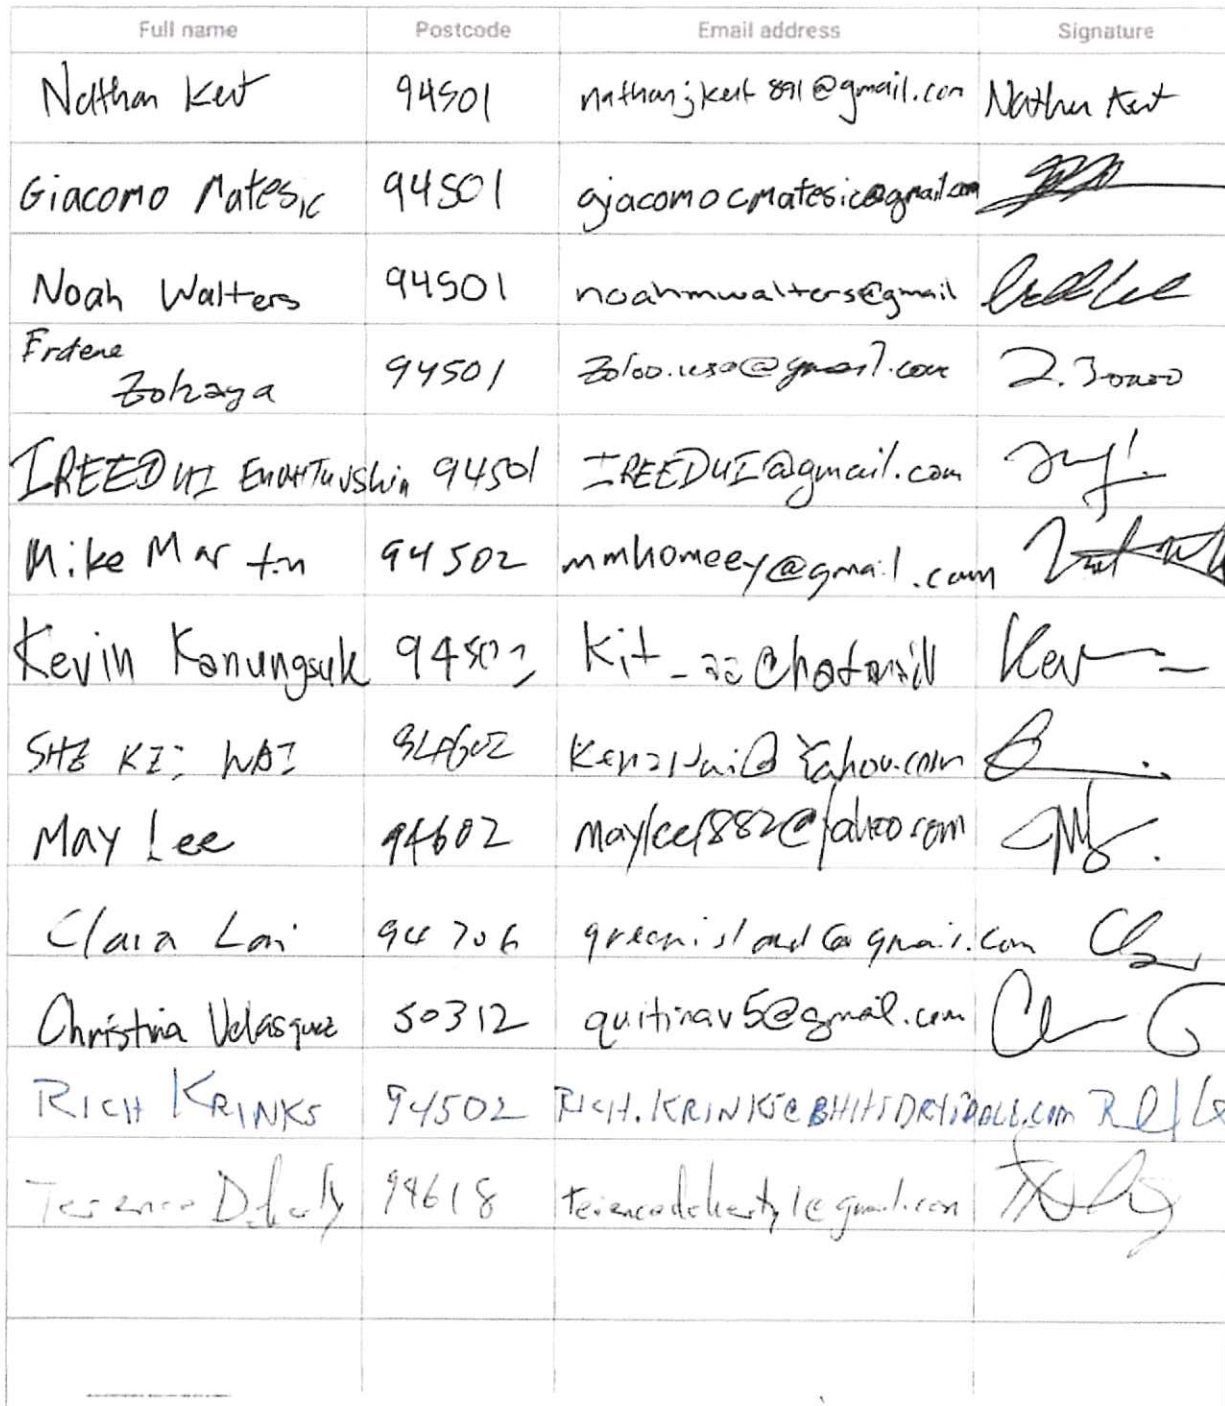 Full name Postcode Email address Signature
Nathan Kent 94501 nathanjkent891@gmail.com Nathan Kent
Giacomo Matesic 94501 giacomocmatesic@gmail.com
Noah Walters 94501 noahmwalters@gmail
Erdene
Zolzaya 94501 zoloo.usa@gmail.com
IREEDUI 94501 IREEDUI@gmail.com
Mike Martin 94502 mmhomeey@gmail.com
Kevin Kanungsuk 94502 Kit_22@hotmail Kev
SHE KEI WAI 94602 @Yahoo.com
May Lee 94602 maylee1882@yahoo.com
Clara Lai 94706 greenisland@gmail.com
Christina Velasquez 50312 quitinav5@gmail.com
RICH KRINKS 94502
Terence Doherty 94618 terencedoherty1@gmail.com